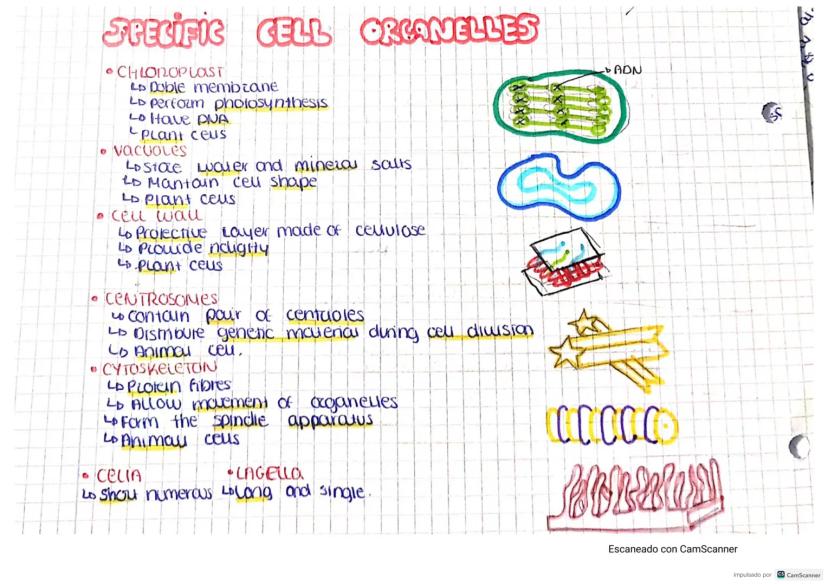 SPECIFIC CELL ORGANELLES
• CHLOROPLAST
↳ Doble membrane
↳ perform photosynthesis
↳ Have DNA
↳ Plant cells
ADN
• VACUOLES
↳ Store water and mineral salts
↳ Mantain cell shape
↳ Plant cells
• CELL WALL
↳ Protective Layer made of cellulose
↳ Provide ridigity
↳ Plant cells
• CENTROSOMES
↳ contain pair of centrioles
↳ Distribute genetic material during cell division
↳ Animal cell.
• CYTOSKELETON
↳ Protein fibres
↳ Allow movement of organelles
↳ Form the spindle apparatus
↳ Animals cells
• CELIA • LAGELLA
↳ Short numerous ↳ Long and single.
Escaneado con CamScanner
impulsado por CS CamScanner